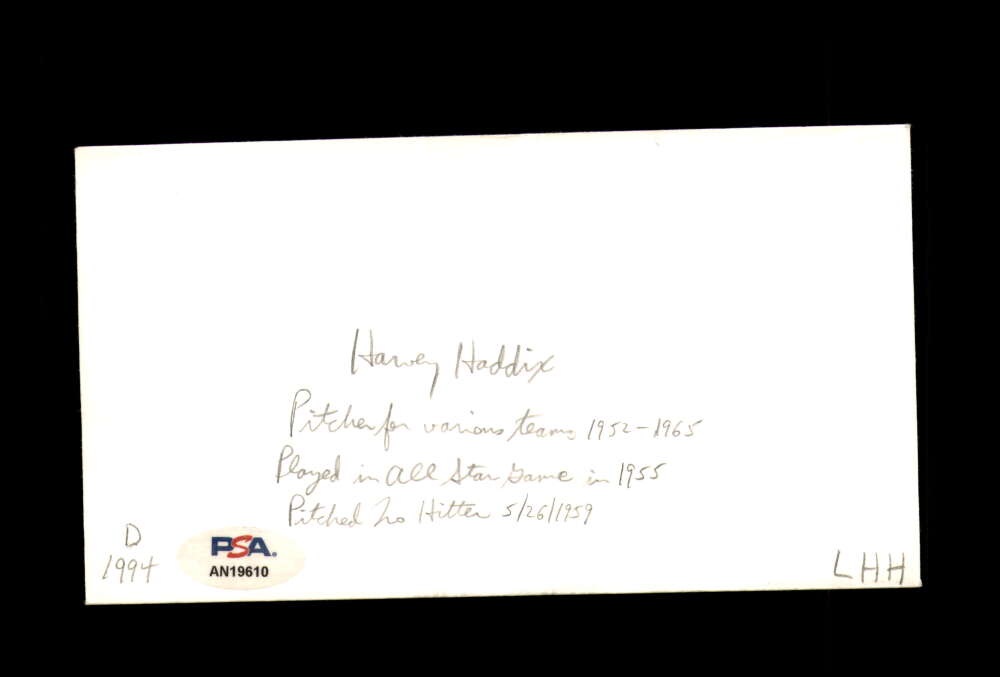 Harvey Haddix
Pitcher for various teams 1952-1965
Played in All Star Game in 1955
Pitched No Hitter 5/26/1959
D
1994
PSA.
AN19610
LHH